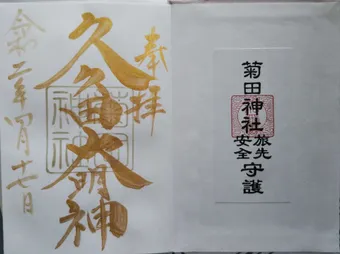 菊田神社旅先安全守護
奉拝
久々田大明神
菊田
神社
令和二年四月十七日